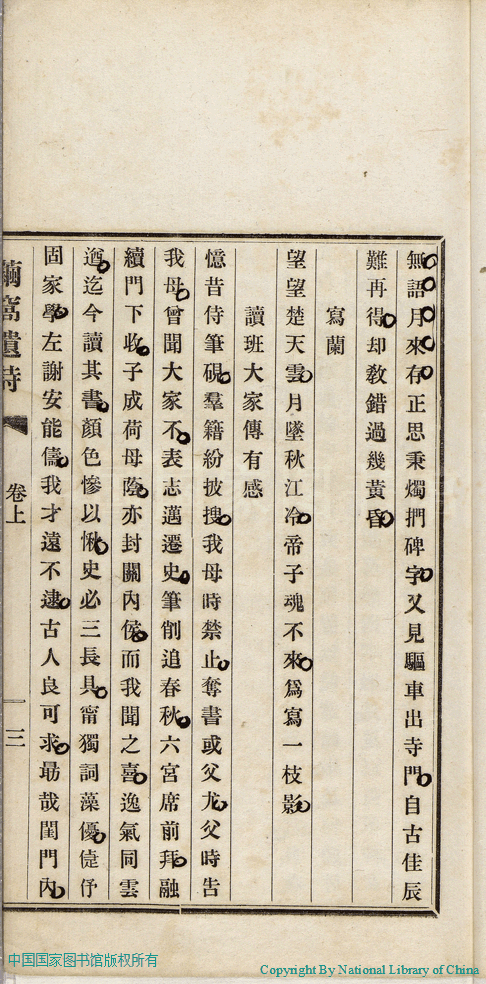 無語月來存正思秉燭捫碑字又見驅車出寺門自古佳辰
難再得却敎錯過幾黃昏
寫蘭
望望楚天雲月墜秋江冷帝子魂不來爲寫一枝影
讀班大家傳有感
憶昔侍筆硯羣籍紛披搜我母時禁止奪書或父尤父時告
我母曾聞大家不表志邁遷史筆削追春秋六宮席前拜融
續門下收子成荷母蔭亦封關內侯而我聞之喜逸氣同雲
遒迄今讀其書顏色慘以愀史必三長具甯獨詞藻優㥶伃
固家學左謝安能儔我才遠不逮古人良可求勗哉閨門內
繭窩遺詩 卷上 一三
中国国家图书馆版权所有
Copyright By National Library of China